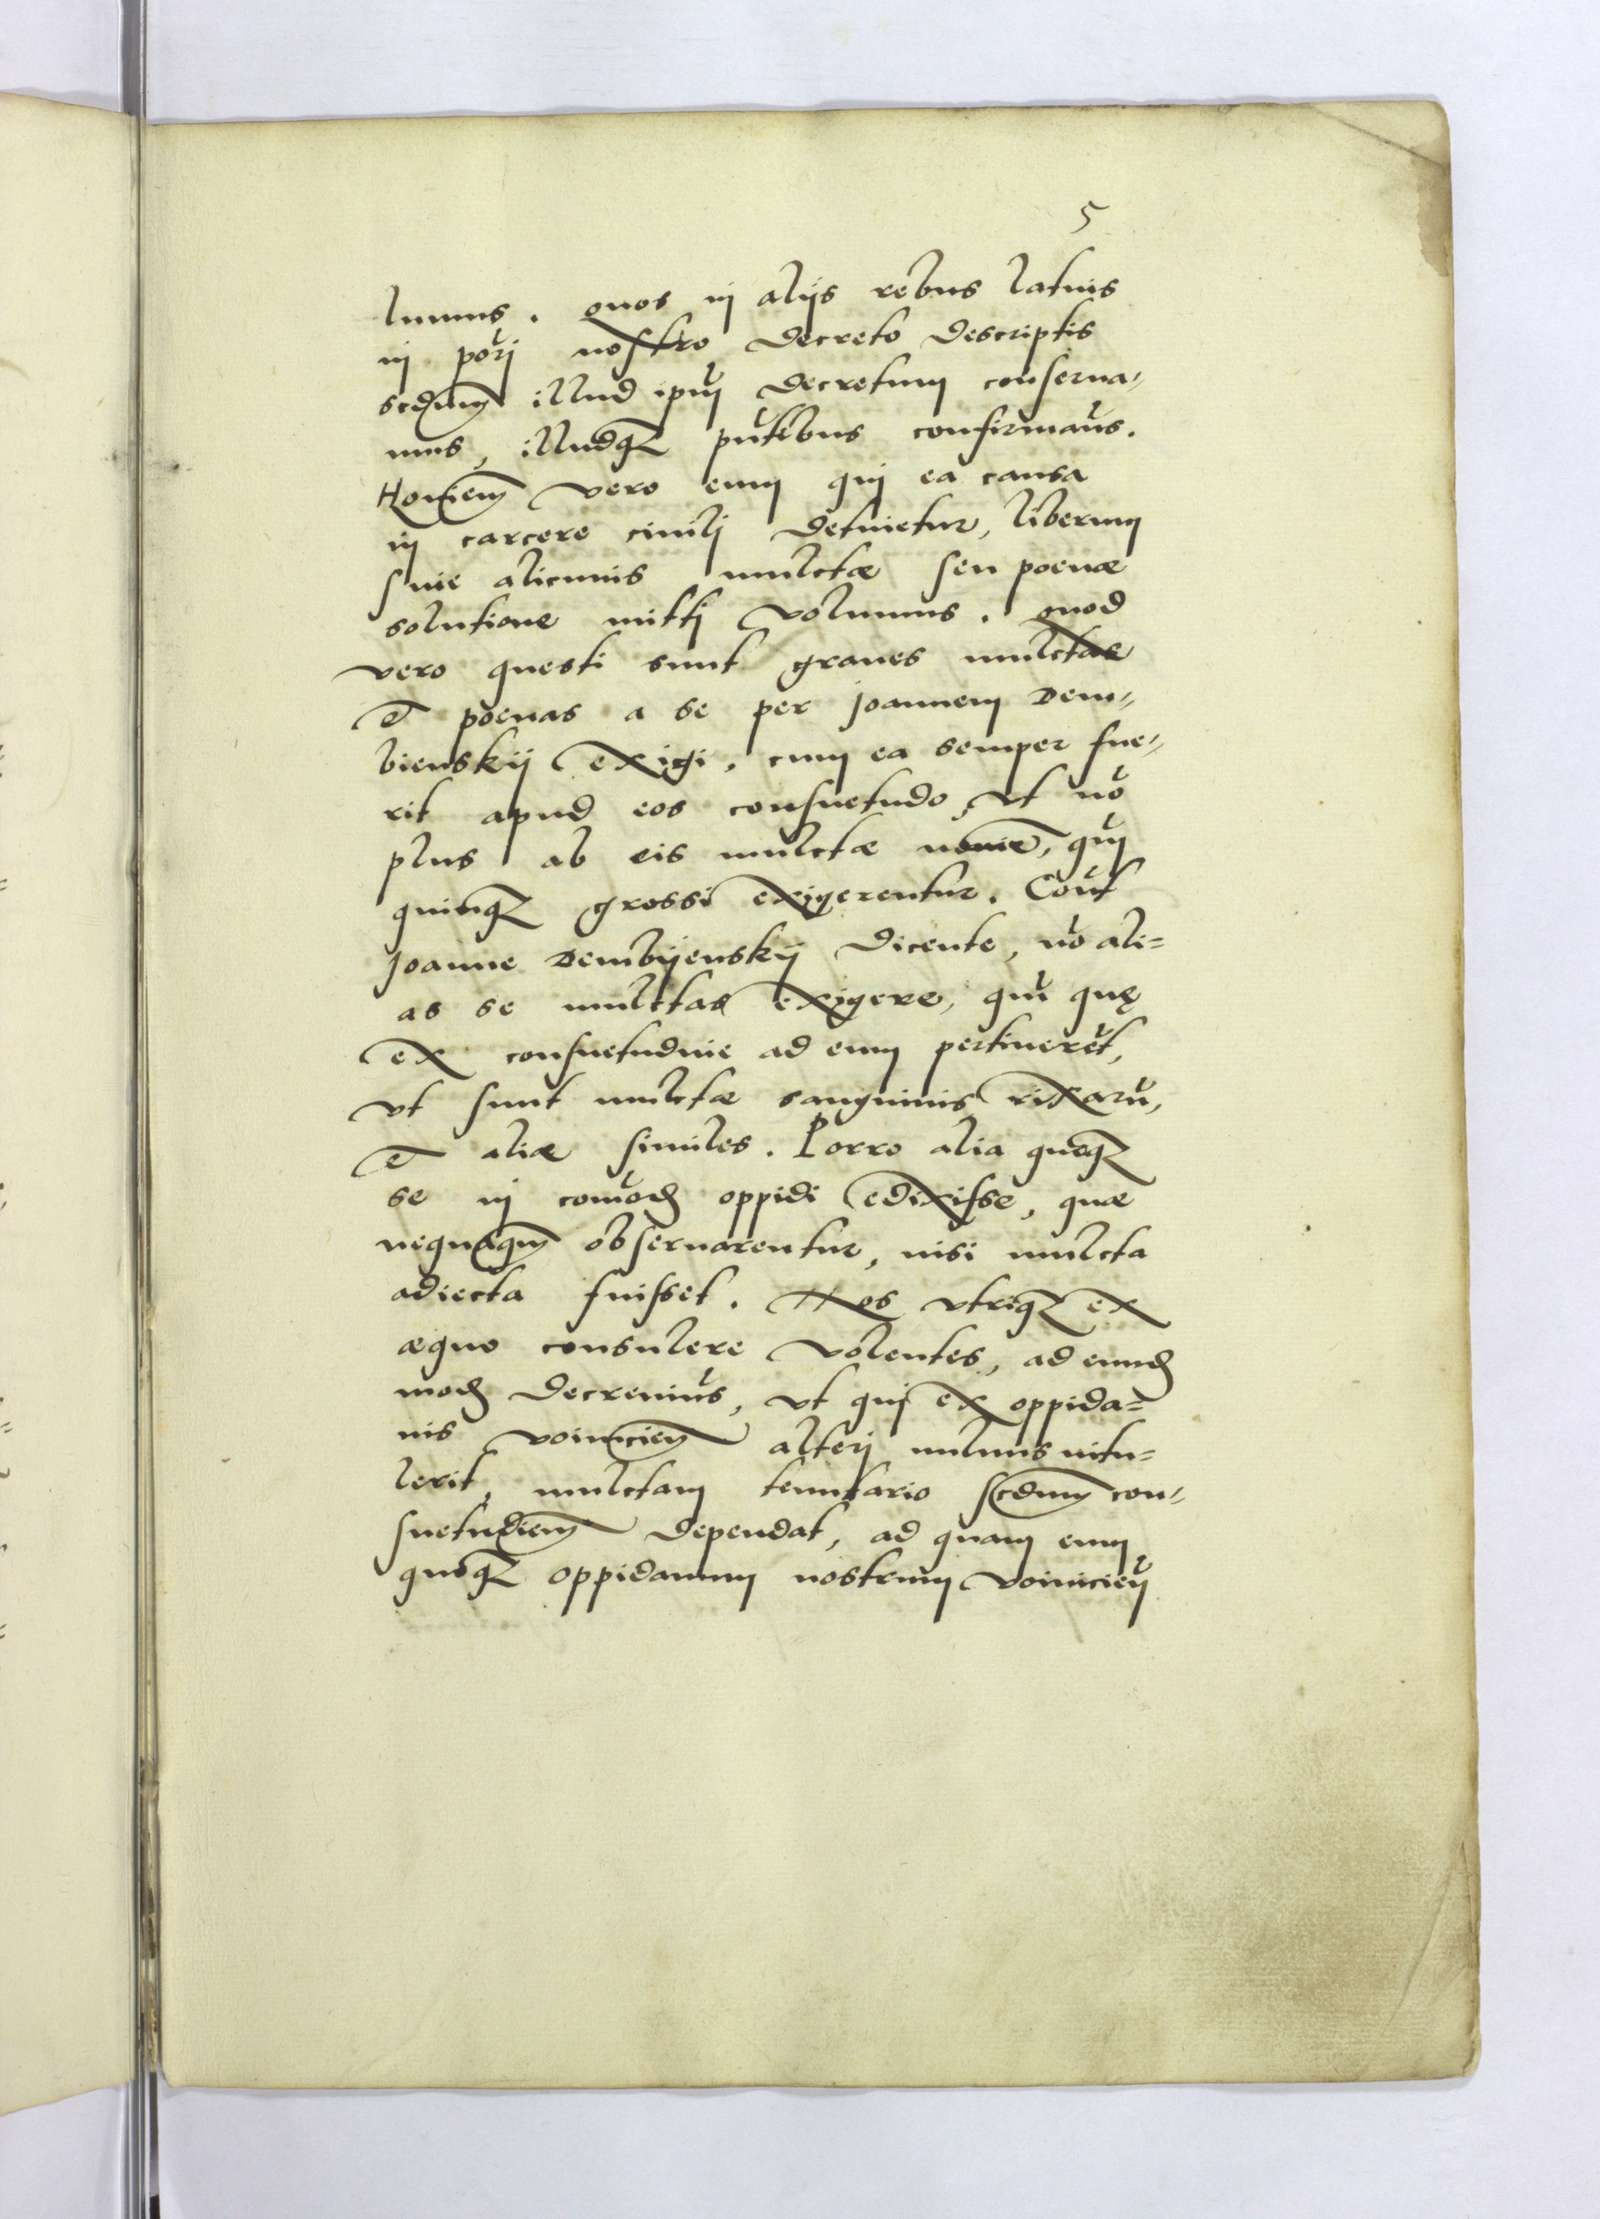 5
lumus. quos in alijs rebus latius
in porj nostro decreto descriptis
scdum illud ipm decretum conserua-
mus, illudqz pntibus confirmaus.
Hominem vero eum qui ea causa
in carcere ciuilj detinetur, liberum
sine alicuius mulctæ seu poenæ
solutione mittj volumus. quod
vero questi sunt graues mulctas
et poenas a se per Joannem Dem-
bienskij exigi, cum ea semper fue-
rit apud eos consuetudo, vt nõ
plus ab eis mulctæ nomine, qm
quinqz grossi exigerentur. Cont
Joanne Dembijenskij dicente, nõ ali=
as se mulctas exigere, qm quę
ex consuetudine ad eum pertinerẽt,
vt sunt mulctæ sanguinis rixarũ,
et aliæ similes. Porro alia queqz
se in comod oppidi edixisse, quæ
nequaqm obseruarentur, nisi mulcta
adiecta fuisset. Nos vtriqz ex
æquo consulere volentes, ad eumd
mod decreuius, vt qui ex oppida=
nis voiniciem alterj vulnus intu=
lerit, mulctam tenutario scdum con-
suetudiem dependat, ad quam eum
quoqz oppidanum nostrum voiniciem